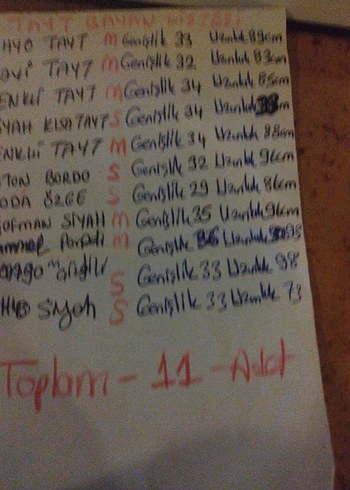 TAYT BAYAN
HYO TAYT M Genişlik 33 Uzunluk 89cm
TAYT M Genişlik 32 Uzunluk 83cm
ENKLİ TAYT M Genişlik 34 Uzunluk 85cm
YAH KISA TAYT S Genişlik 34 Uzunluk
ENKLİ TAYT M Genişlik 34 Uzunluk 88cm
TON BORDO S Genişlik 32 Uzunluk 96cm
ODA ÖZGE S Genişlik 29 Uzunluk 86cm
OFMAN SİYAH M Genişlik 35 Uzunluk 96cm
M Genişlik 36 Uzunluk
S Genişlik 33 Uzunluk 98
Siyah S Genişlik 33 Uzunluk 73
Toplam - 11 - Adet